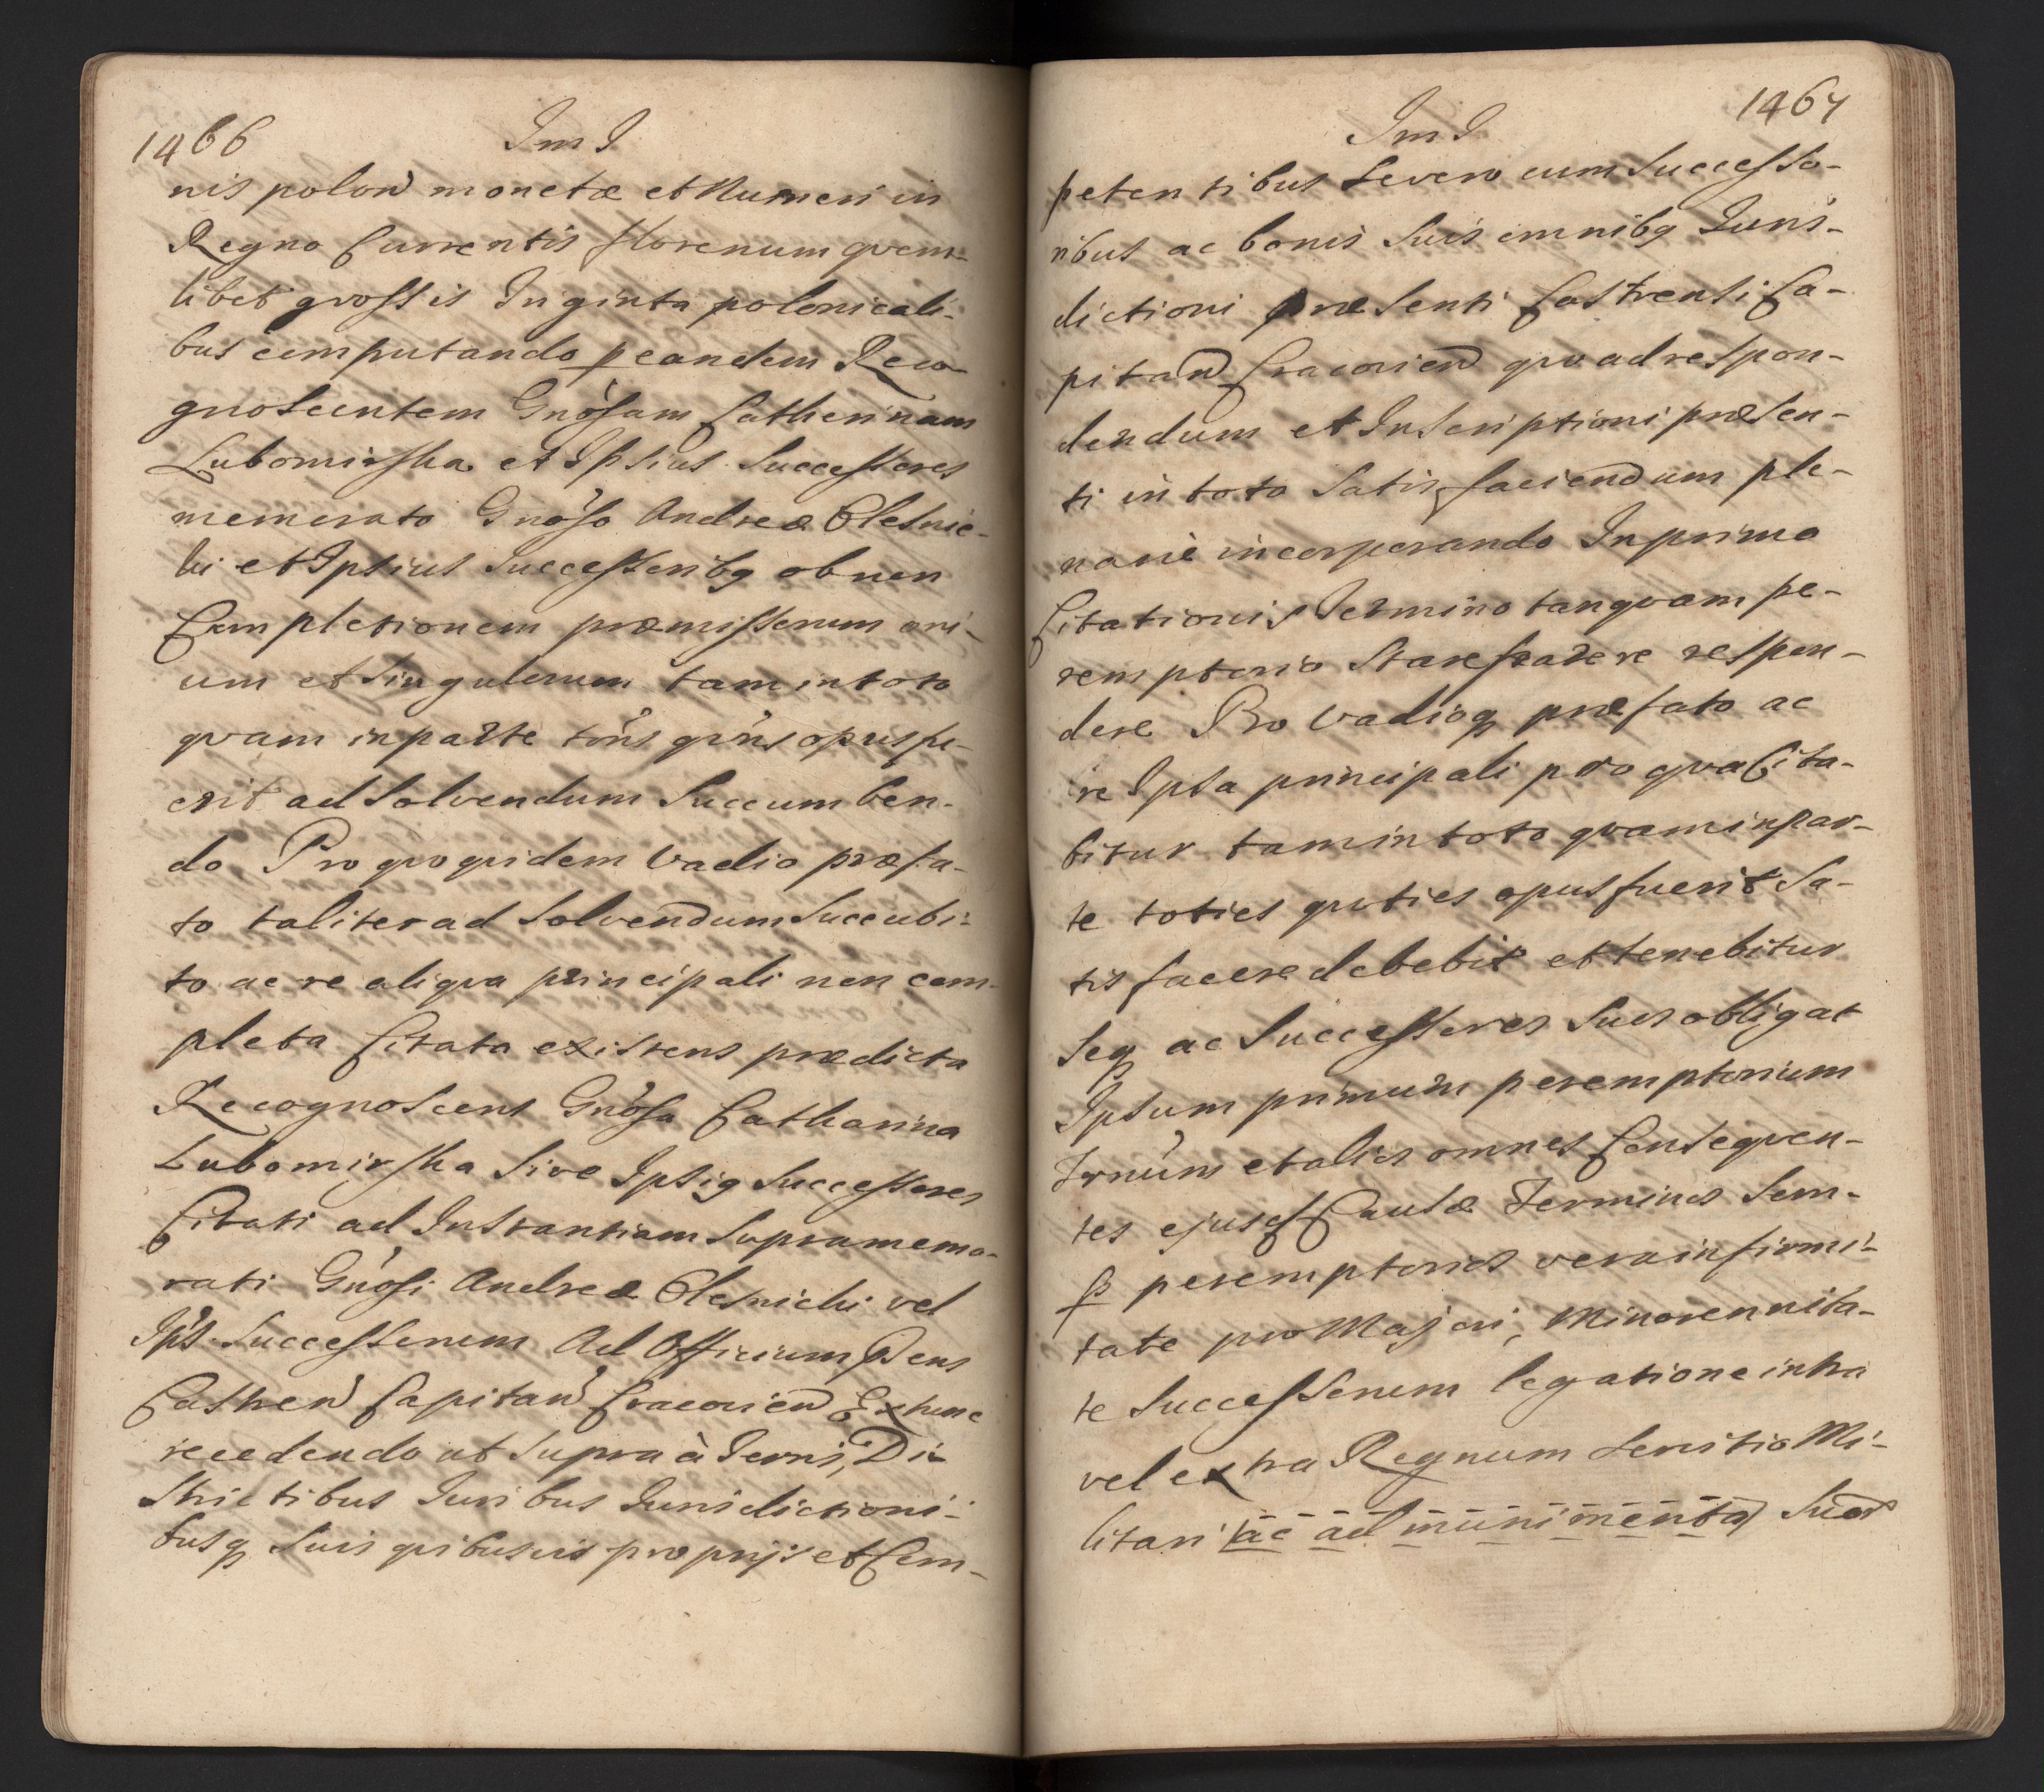 1466
Im I
nis polon monetæ et Numeri in
Regno Currentis florenum qvem-
libet grossis Triginta polonicali-
bus computando p eandem Reco-
gnoscentem Gnosam Catherinam
Lubomirska et Ipsius Successores
memorato Gnoso Andreæ Olesnic-
ki et Ipsius Successoribq ob non
Completionem præmissorum oni-
um et Singulorum tam in toto
qvam in parte tons qons opus fu-
erit ad Solvendum Succumben-
do Pro qvo qvidem Vadio præfa-
to taliter ad Solvendum Succubi-
to ac re aliqva principali non com-
pleta Citata existens prædicta
Recognoscens Gnosa Catharina
Lubomirska Sive Ipsiq Successores
Citati ad Instantiam Supramemo-
rati Gnosi Andreæ Olesnicki vel
Ips Successorum Ad Officium Pens
Castren Capitan Cracovien Extunc
recedendo ut Supra à Terris, Di-
Strictibus Juribus Jurisdictioni-
busq Suis qvibusvis proprijs et Com-
1467
Im I
petentibus Severo cum Successo-
ribus ac bonis Suis omnibq Juris-
dictioni præsenti Castrensi Ca-
pitan Cracovien qvo ad respon-
dendum et Inscriptioni præsen-
ti in toto Satisfaciendum ple-
narie incorporando In primo
Citationis Termino tanqvam pe-
remptorio Stare parere respon-
dere Pro Vadioq præfato ac
re Ipsa principali pro qva Cita-
bitur tam in toto qvam in par-
te toties qvoties opus fuerit Sa-
tisfacere debebit et tenebitur
Seq ac Successores Suos obligat
Ipsum primum peremptorium
Trnum et alios omnes Conseqven-
tes ejusd Causæ Terminos Sem-
p peremptorios vera infirmi-
tate pro Majori, Minorennita-
te Successorum legatione intra
vel extra Regnum Servitio Mi-
litari ac ad munimenta Suor